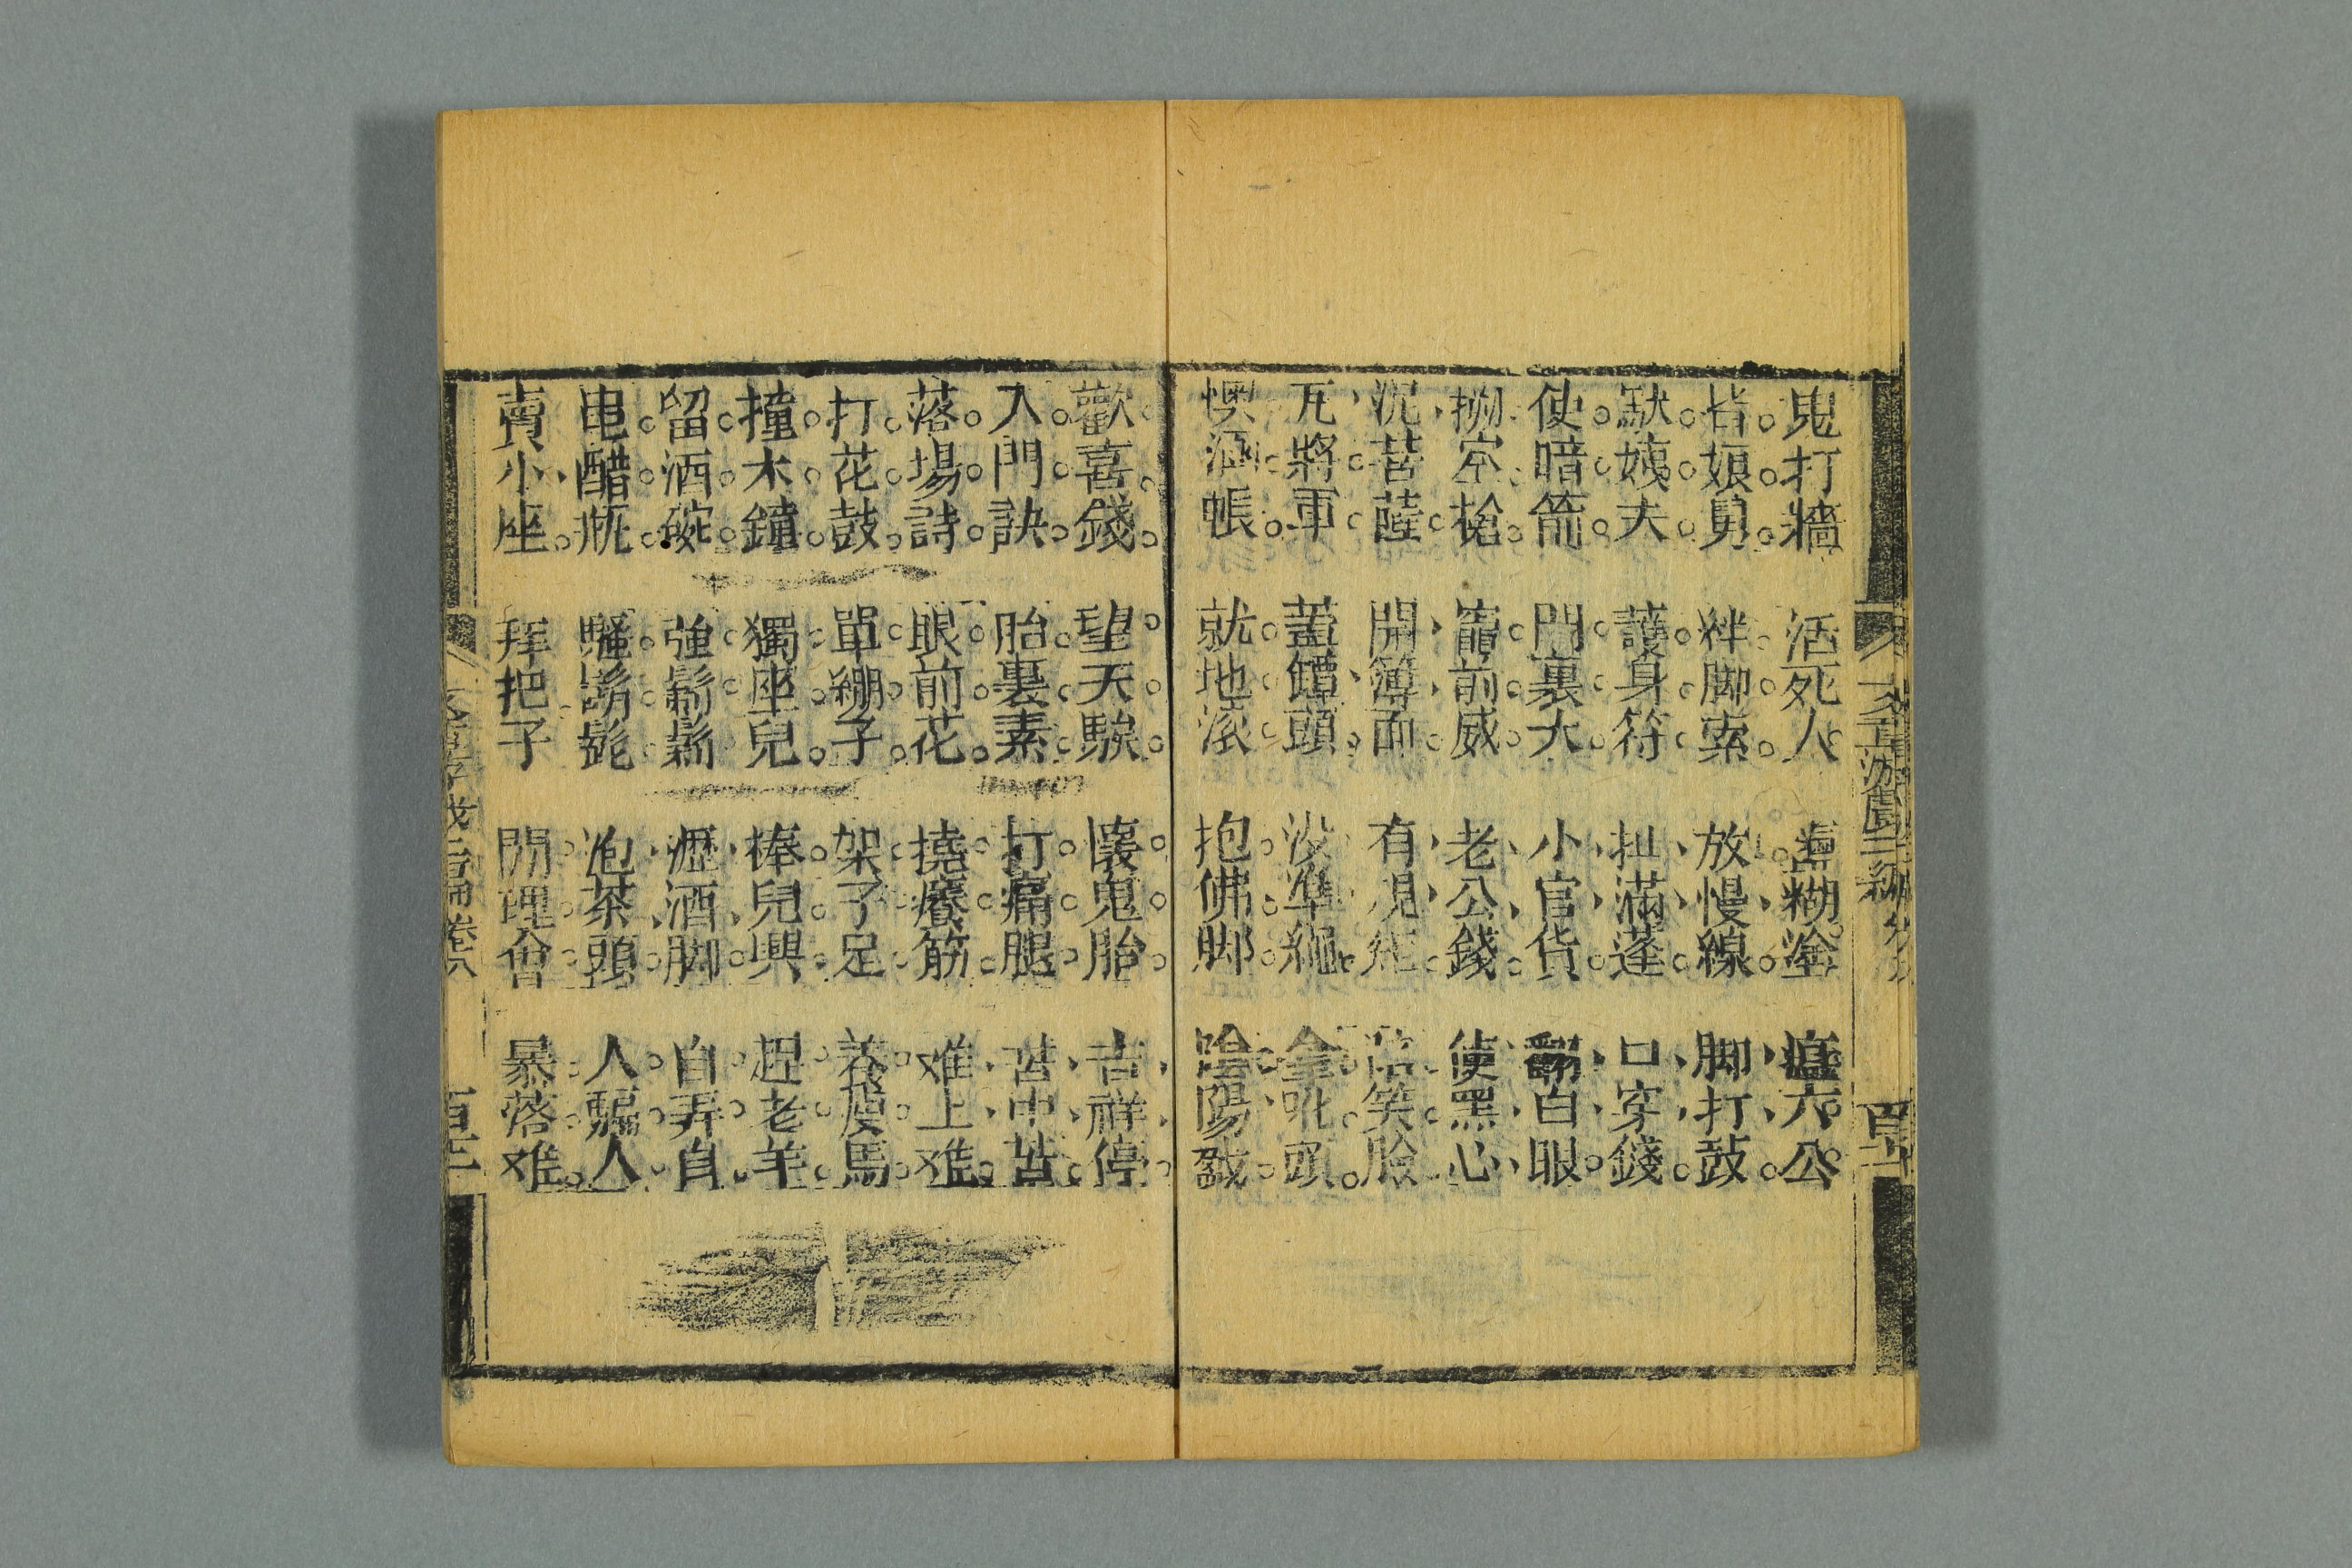 鬼打牆 活死人 盪糊塗 瘟六公
皆娘舅 絆脚索 放慢線 脚打鼓
缺姨夫 護身符 扯滿蓬 口穿錢
使暗箭 門裏大 小官貨 翻白眼
掤空槍 竈前威 老公錢 使黑心
泥菩薩 開簿面 有規絰 陪笑臉
瓦將軍 蓋罎頭 没準繩 拿訛頭
懊涵帳 就地滾 抱佛脚 陰陽數
歡喜錢 望天騃 懷鬼胎 吉祥停
入門訣 胎裏素 打痛腿 苦中苦
落場詩 眼前花 撓癢筋 难上难
打花鼓 單綳子 架子足 養瘦馬
撞木鐘 獨座兒 棒兒興 趕老羊
留酒碗 強鬍鬚 瀝酒脚 自弄自
電醋瓶 騷鬍髭 泡茶頭 人騙人
賣小座 拜把子 閒理會 暴落难